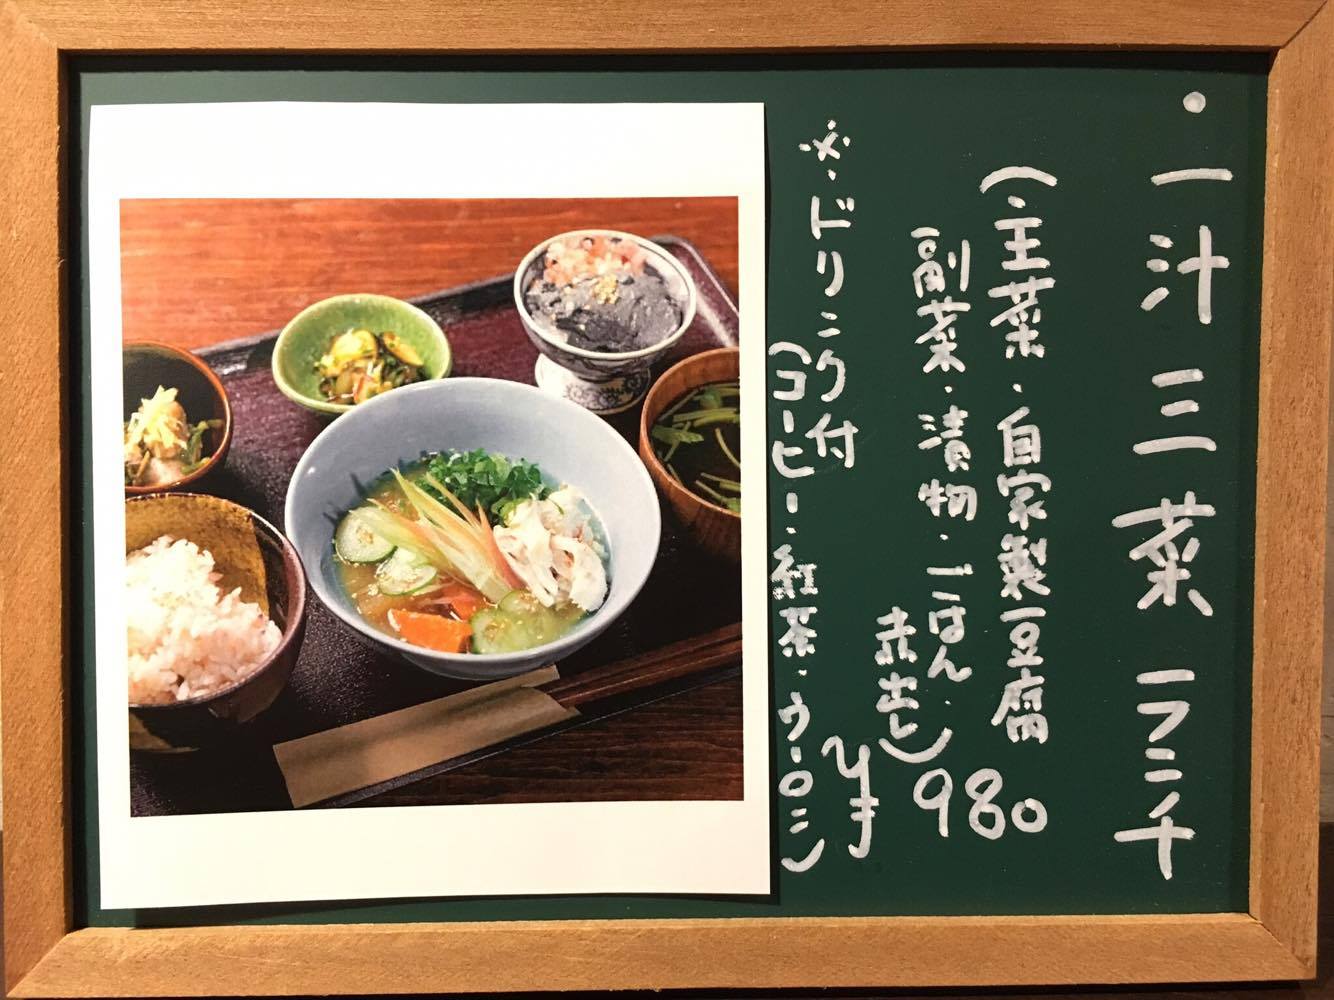 ・一汁三菜ランチ
(・主菜・自家製豆腐
副菜・漬物・ごはん・
赤出し)
¥980
※・ドリンク付
(コーヒー・紅茶・ウーロン)